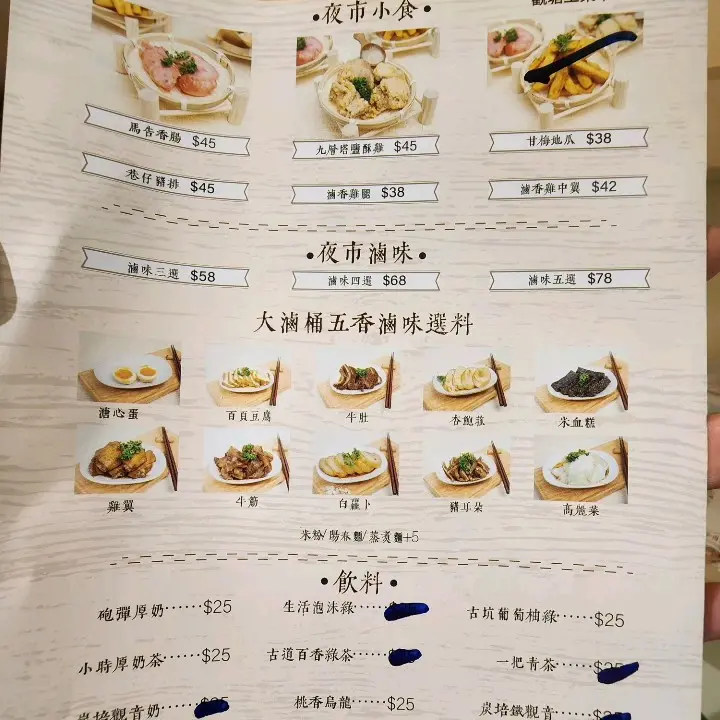 •夜市小食•
馬告香腸 $45
九層塔鹽酥雞 $45
甘梅地瓜 $38
巷仔豬排 $45
滷香雞腿 $38
滷香雞中翼 $42
•夜市滷味•
滷味三選 $58
滷味四選 $68
滷味五選 $78
大滷桶五香滷味選料
溏心蛋
百頁豆腐
牛肚
杏鮑菇
米血糕
雞翼
牛筋
白蘿卜
豬耳朵
高麗菜
米粉/陽春麵/蒸煑麵+5
•飲料•
砲彈厚奶······$25
生活泡沫綠······
古坑葡萄柚綠······$25
小時厚奶茶······$25
古道百香綠茶······
一把青茶······
炭培觀音奶······
桃香烏龍······$25
炭培鐵觀音······